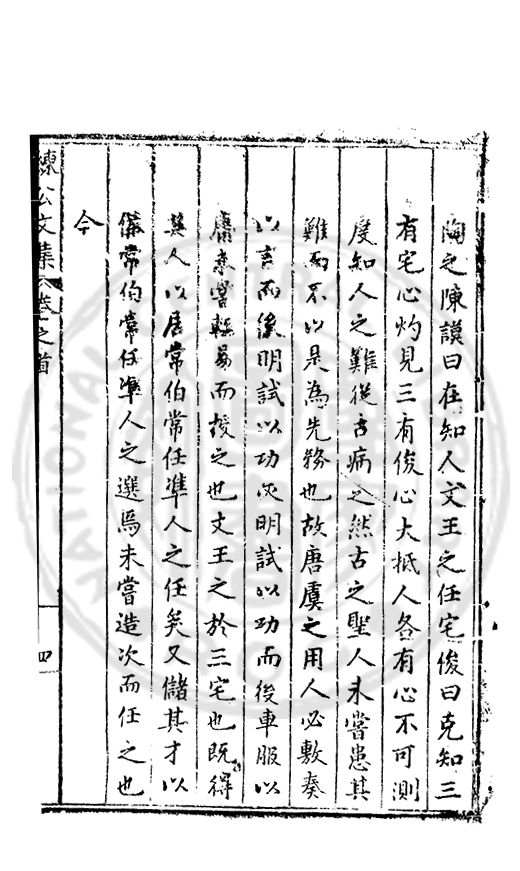 陶之陳謨曰在知人文王之任宅俊曰克知三
有宅心灼見三有俊心大抵人各有心不可測
度知人之難從古病之然古之聖人未嘗患其
難而不以是為先務也故唐虞之用人必敷奏
以言而後明試以功必明試以功而後車服以
庸未嘗輕易而授之也文王之於三宅也既得
其人以居常伯常任準人之任矣又儲其才以
備常伯常任準人之選焉未嘗造次而任之也
今
公文集卷之首
四
NATIONAL